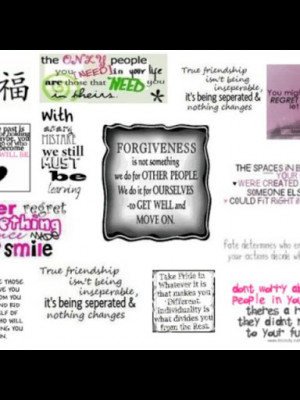 福
the ONLY people
you NEED in your life
are those that NEED you
in theirs.
True friendship
isn't being
inseperable,
it's being seperated &
nothing changes
REGRET
past is
become
With
every
MISTAKE
we still
MUST
be
learning
FORGIVENESS
is not something
we do for OTHER PEOPLE.
We do it for OURSELVES
-to GET WELL and
MOVE ON.
THE SPACES IN
YOUR
WERE CREATED
SOMEONE
COULD FIT RIGHT
regret
made
smile
Fate determines who
your actions decide
True friendship
isn't being
inseperable,
it's being seperated &
nothing changes
Take Pride in
Whatever it is
that makes you
Different.
Individuality is
what divides you
from the Rest.
THOSE
YOU
FROM
AND
OF
WHO
YOU
ON.
dont worry
People in
theres a
they didnt
to your